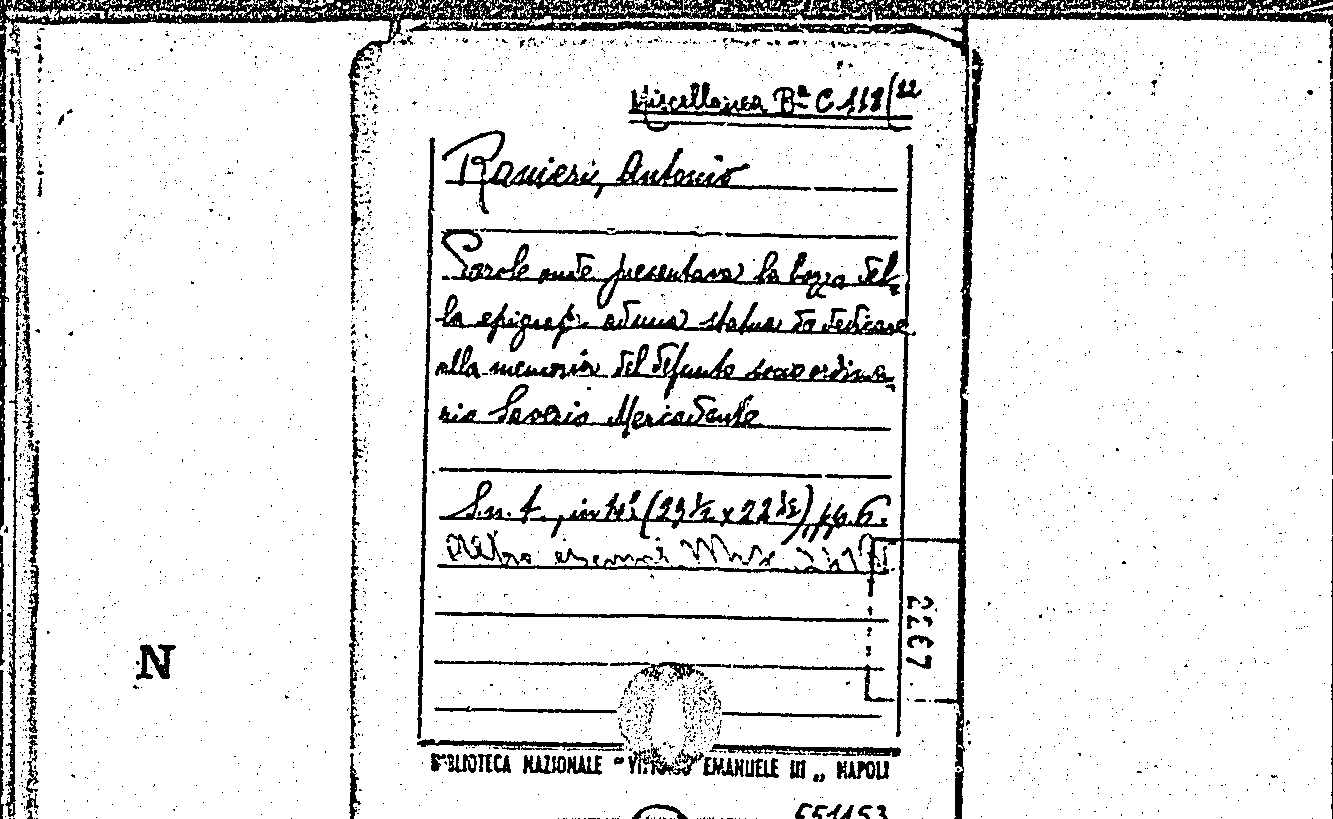 Miscellanea Bª C 118/22
Ranieri, Antonio
Parole onde presentava la bozza del-
la epigrafe ad una statua da dedicare
alla memoria del defunto socio ordina-
rio Saverio Mercadante
S. n. t., in 4º (29 ½ x 22 ½), pp. 6.
Altro
2267
N
BIBLIOTECA NAZIONALE "VITTORIO EMANUELE III" NAPOLI
551453